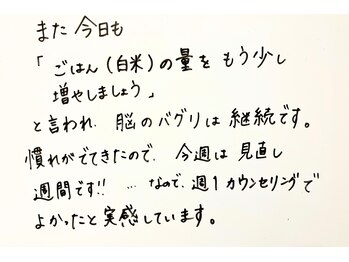 また今日も
「ごはん(白米)の量をもう少し
増やしましょう」
と言われ、脳のバグリは継続です。
慣れがでてきたので、今週は見直し
週間です!! …なので、週1カウンセリングで
よかったと実感しています。